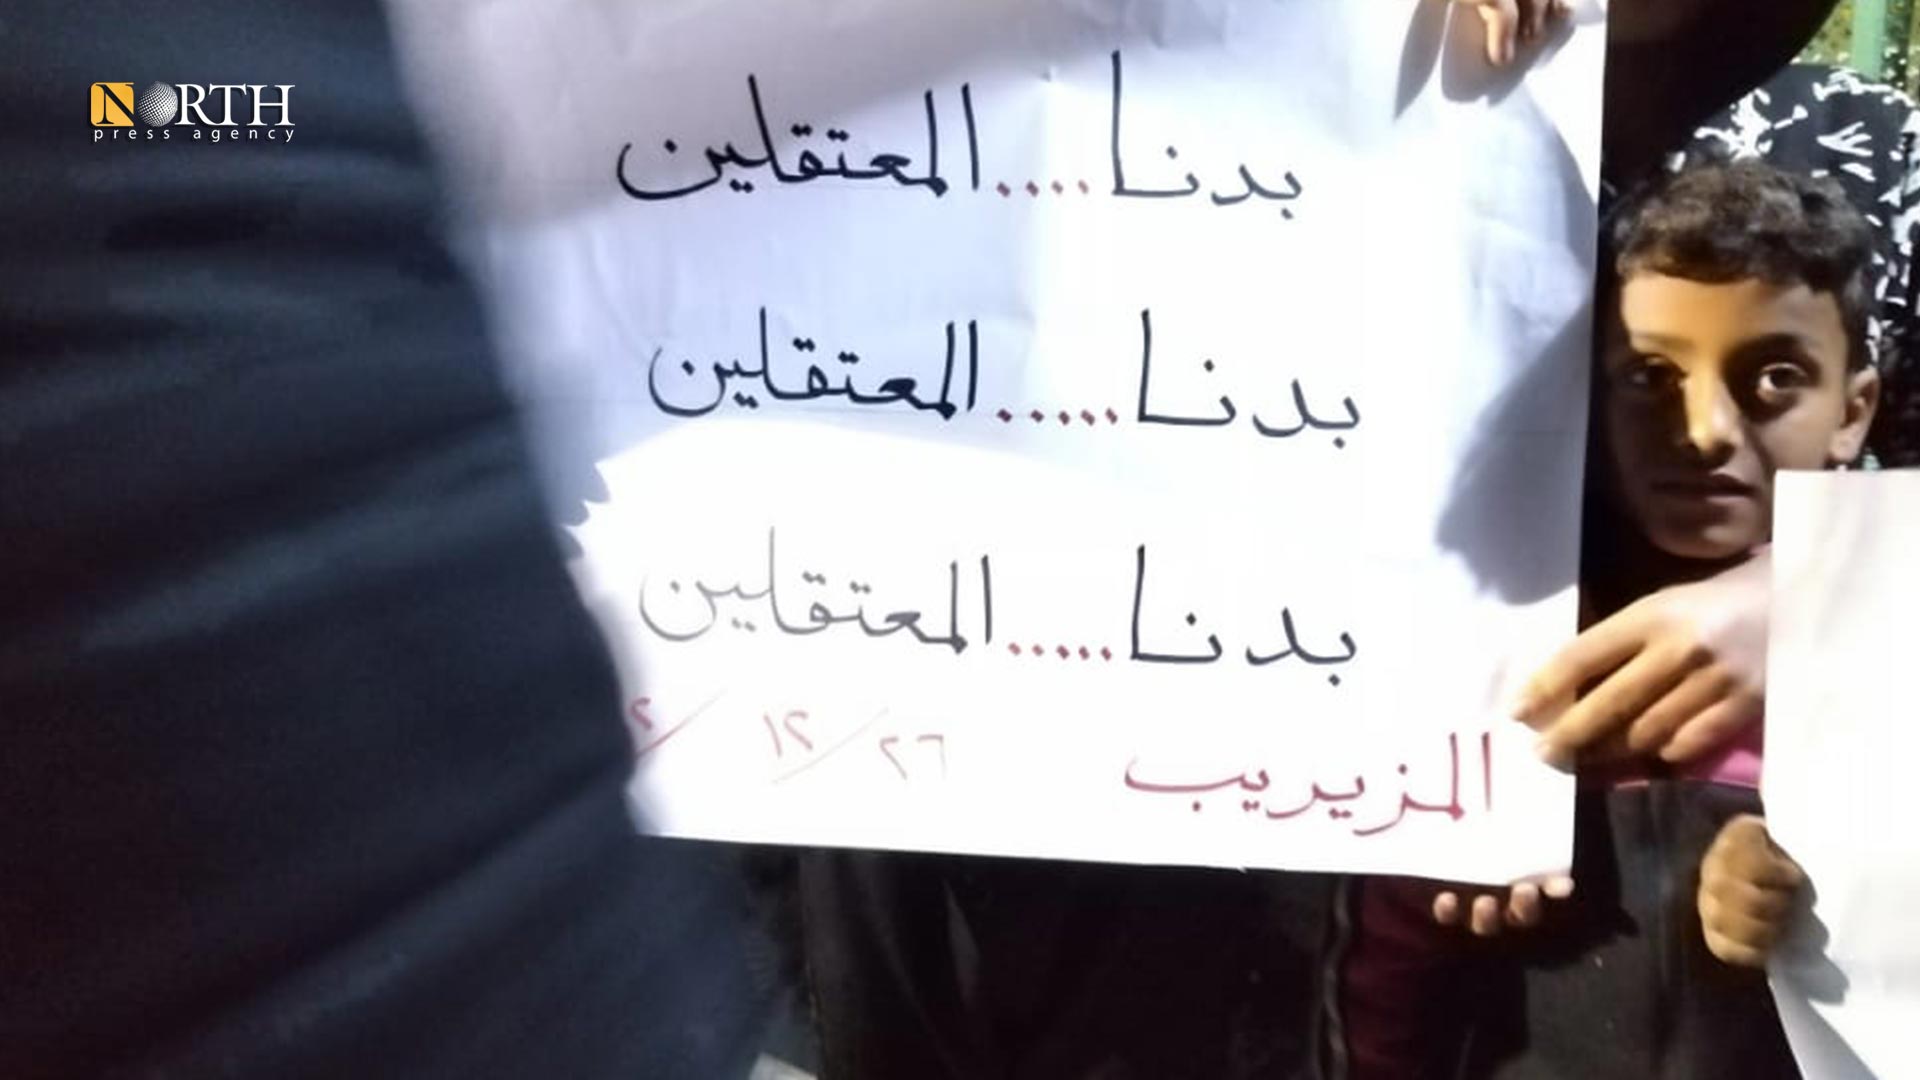 NORTH
press agency
بدنا....المعتقلين
بدنا.....المعتقلين
بدنا.....المعتقلين
المزيريب ٢٦/١٢/٢